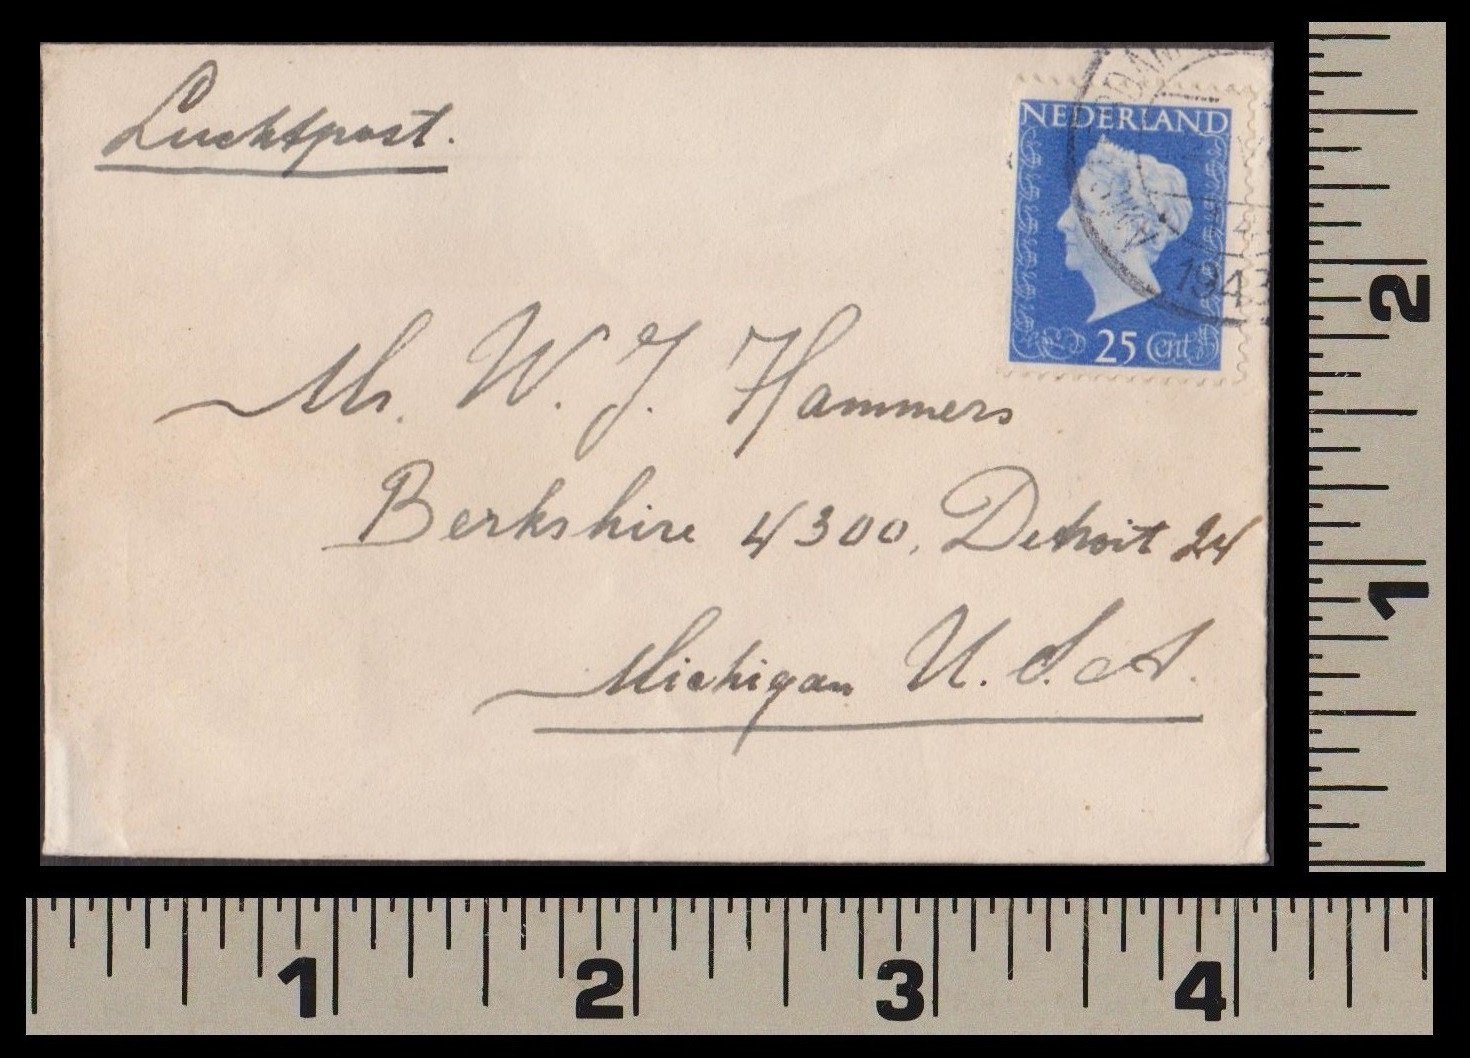 Luchtpost.
NEDERLAND
1943
25 Cent
Mr. W. J. Hammers
Berkshire 4300, Detroit 24
Michigan U. S. A.
2
1
1 2 3 4